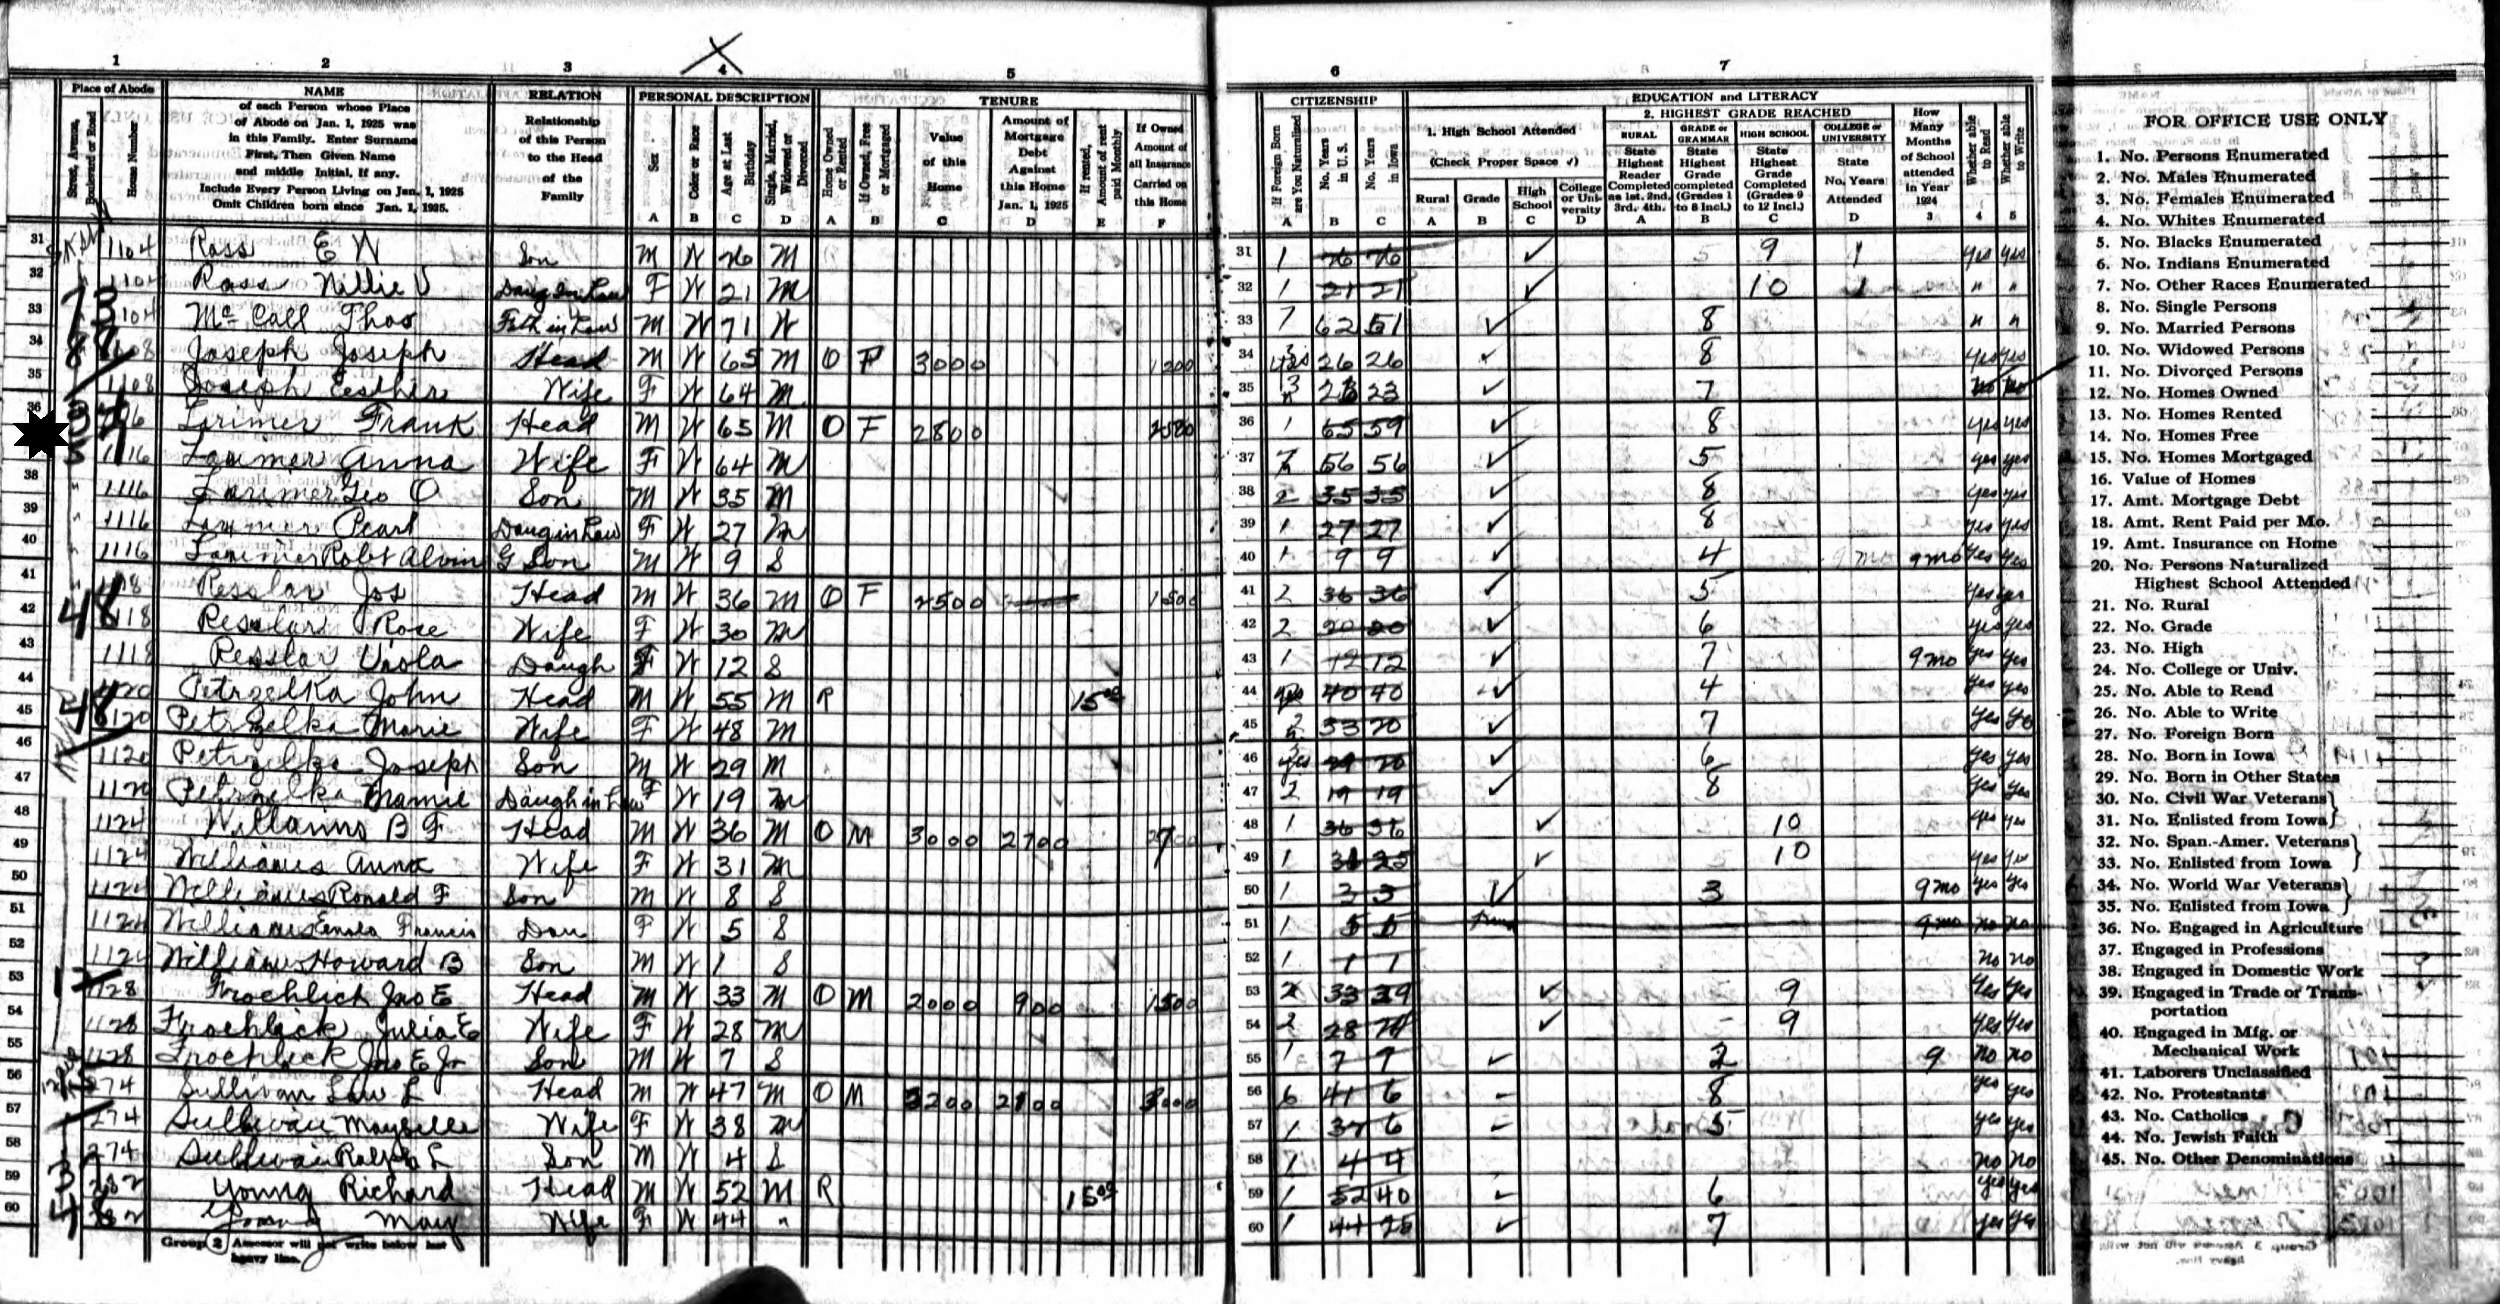 1 2 3 4 5 6 7
Place of Abode
Street, Avenue, Boulevard or Road
Home Number
NAME
of each Person whose Place
of Abode on Jan. 1, 1925 was
in this Family. Enter Surname
First, Then Given Name
and middle Initial, if any.
Include Every Person Living on Jan. 1, 1925
Omit Children born since Jan. 1, 1925.
RELATION
Relationship
of this Person
to the Head
of the
Family
PERSONAL DESCRIPTION
Sex
Color or Race
Age at Last Birthday
Single, Married, Widowed or Divorced
A B C D
TENURE
Home Owned or Rented
If Owned, Free or Mortgaged
Value of this Home
Amount of Mortgage Debt Against this Home Jan. 1, 1925
If rented, Amount of rent paid Monthly
If Owned Amount of all Insurance Carried on this Home
A B C D E F
CITIZENSHIP
If Foreign Born are You Naturalized
No. Years in U.S.
No. Years in Iowa
A B C
EDUCATION and LITERACY
1. High School Attended
(Check Proper Space ✓)
Rural Grade High School College or University
A B C D
2. HIGHEST GRADE REACHED
RURAL
State Highest Reader Completed as 1st. 2nd. 3rd. 4th.
GRADE or GRAMMAR
State Highest Grade completed (Grades 1 to 8 Incl.)
HIGH SCHOOL
State Highest Grade Completed (Grades 9 to 12 Incl.)
COLLEGE or UNIVERSITY
State No. Years Attended
A B C D
How Many Months of School attended in Year 1924
3
Whether able to Read
4
Whether able to Write
5
31 1104 Ross E W Son M W 26 M 1 26 26 ✓ 9 1 yes yes
32 1104 Ross Nillie V Daug in Law F W 21 M 1 21 21 ✓ 10 1 " "
33 1104 McCall Thos Fath in Law M W 71 W 7 62 51 ✓ 8 " "
34 1108 Joseph Joseph Head M W 65 M O F 3000 1200 yes 26 26 ✓ 8 yes yes
35 1108 Joseph Eesther Wife F W 64 M 3 23 23 ✓ 7 no no
36 1116 Larimer Frank Head M W 65 M O F 2800 1 65 59 ✓ 8 yes yes
37 1116 Larimer Anna Wife F W 64 M 56 56 ✓ 5 yes yes
38 1116 Larimer Geo O Son M W 35 M 2 35 35 ✓ 8 yes yes
39 1116 Larimer Pearl Daug in Law F W 27 M 1 27 27 ✓ 8 yes yes
40 1116 Larimer Robt Alvin G Son M W 9 S 1 9 9 ✓ 4 9 mo yes yes
41 1118 Resslar Jos Head M W 36 M O F 2500 1500 2 36 36 ✓ 5 yes yes
42 1118 Resslar Rose Wife F W 30 M 2 ✓ 6 yes yes
43 1118 Resslar Viola Daugh F W 12 S 1 12 12 ✓ 7 9 mo yes yes
44 1120 Petrzelka John Head M W 55 M R 15 00 yes 40 40 ✓ 4 yes yes
45 1120 Petrzelka Marie Wife F W 48 M 33 20 ✓ 7 yes yes
46 1120 Petrzelka Joseph Son M W 29 M yes ✓ 6 yes yes
47 1120 Petrzelka Mamie Daugh in Law F W 19 M 2 19 19 ✓ 8 yes yes
48 1124 Williams B F Head M W 36 M O M 3000 2700 1 36 36 ✓ 10 yes yes
49 1124 Williams Anna Wife F W 31 M 1 25 ✓ 10 yes yes
50 1124 Williams Ronald F Son M W 8 S 1 3 3 ✓ 3 9 mo yes yes
51 1124 Williams Francis Dau F W 5 S 1 5 5 9 mo no no
52 1124 Williams Howard B Son M W 1 S 1 1 1 no no
53 1128 Froehlick Jno E Head M W 33 M O M 2000 900 1500 2 33 29 ✓ 9 yes yes
54 1128 Froehlick Julia E Wife F W 28 M 2 28 ✓ - 9 yes yes
55 1128 Froehlick Jno E Jr Son M W 7 S 1 7 7 ✓ 2 9 no no
56 274 Sullivan L Head M W 47 M O M 3200 3000 6 41 6 - 8 yes yes
57 274 Sullivan Maybelle Wife F W 38 M 1 6 - 5 yes yes
58 274 Sullivan Ralph L Son M W 4 S 1 4 4 no no
59 282 Young Richard Head M W 52 M R 15 00 1 52 40 ✓ 6 yes yes
60 282 Young May Wife F W 44 " 1 44 25 ✓ 7 yes yes
Group 2 Assessor will not write below last
heavy line.
FOR OFFICE USE ONLY
1. No. Persons Enumerated
2. No. Males Enumerated
3. No. Females Enumerated
4. No. Whites Enumerated
5. No. Blacks Enumerated
6. No. Indians Enumerated
7. No. Other Races Enumerated
8. No. Single Persons
9. No. Married Persons
10. No. Widowed Persons
11. No. Divorced Persons
12. No. Homes Owned
13. No. Homes Rented
14. No. Homes Free
15. No. Homes Mortgaged
16. Value of Homes
17. Amt. Mortgage Debt
18. Amt. Rent Paid per Mo.
19. Amt. Insurance on Home
20. No. Persons Naturalized
Highest School Attended
21. No. Rural
22. No. Grade
23. No. High
24. No. College or Univ.
25. No. Able to Read
26. No. Able to Write
27. No. Foreign Born
28. No. Born in Iowa
29. No. Born in Other States
30. No. Civil War Veterans
31. No. Enlisted from Iowa
32. No. Span.-Amer. Veterans
33. No. Enlisted from Iowa
34. No. World War Veterans
35. No. Enlisted from Iowa
36. No. Engaged in Agriculture
37. Engaged in Professions
38. Engaged in Domestic Work
39. Engaged in Trade or Transportation
40. Engaged in Mfg. or
Mechanical Work
41. Laborers Unclassified
42. No. Protestants
43. No. Catholics
44. No. Jewish Faith
45. No. Other Denominations